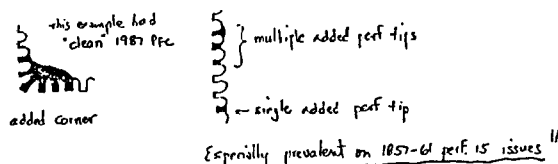 this example had
"clean" 1987 PFC
added corner
multiple added perf tips
single added perf tip
Especially prevalent on 1857-61 perf. 15 issues